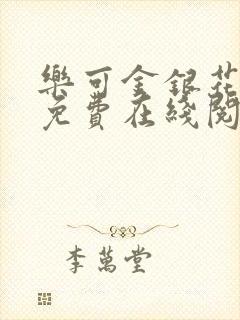 樂可金銀花
免費在綫閱
李萬堂